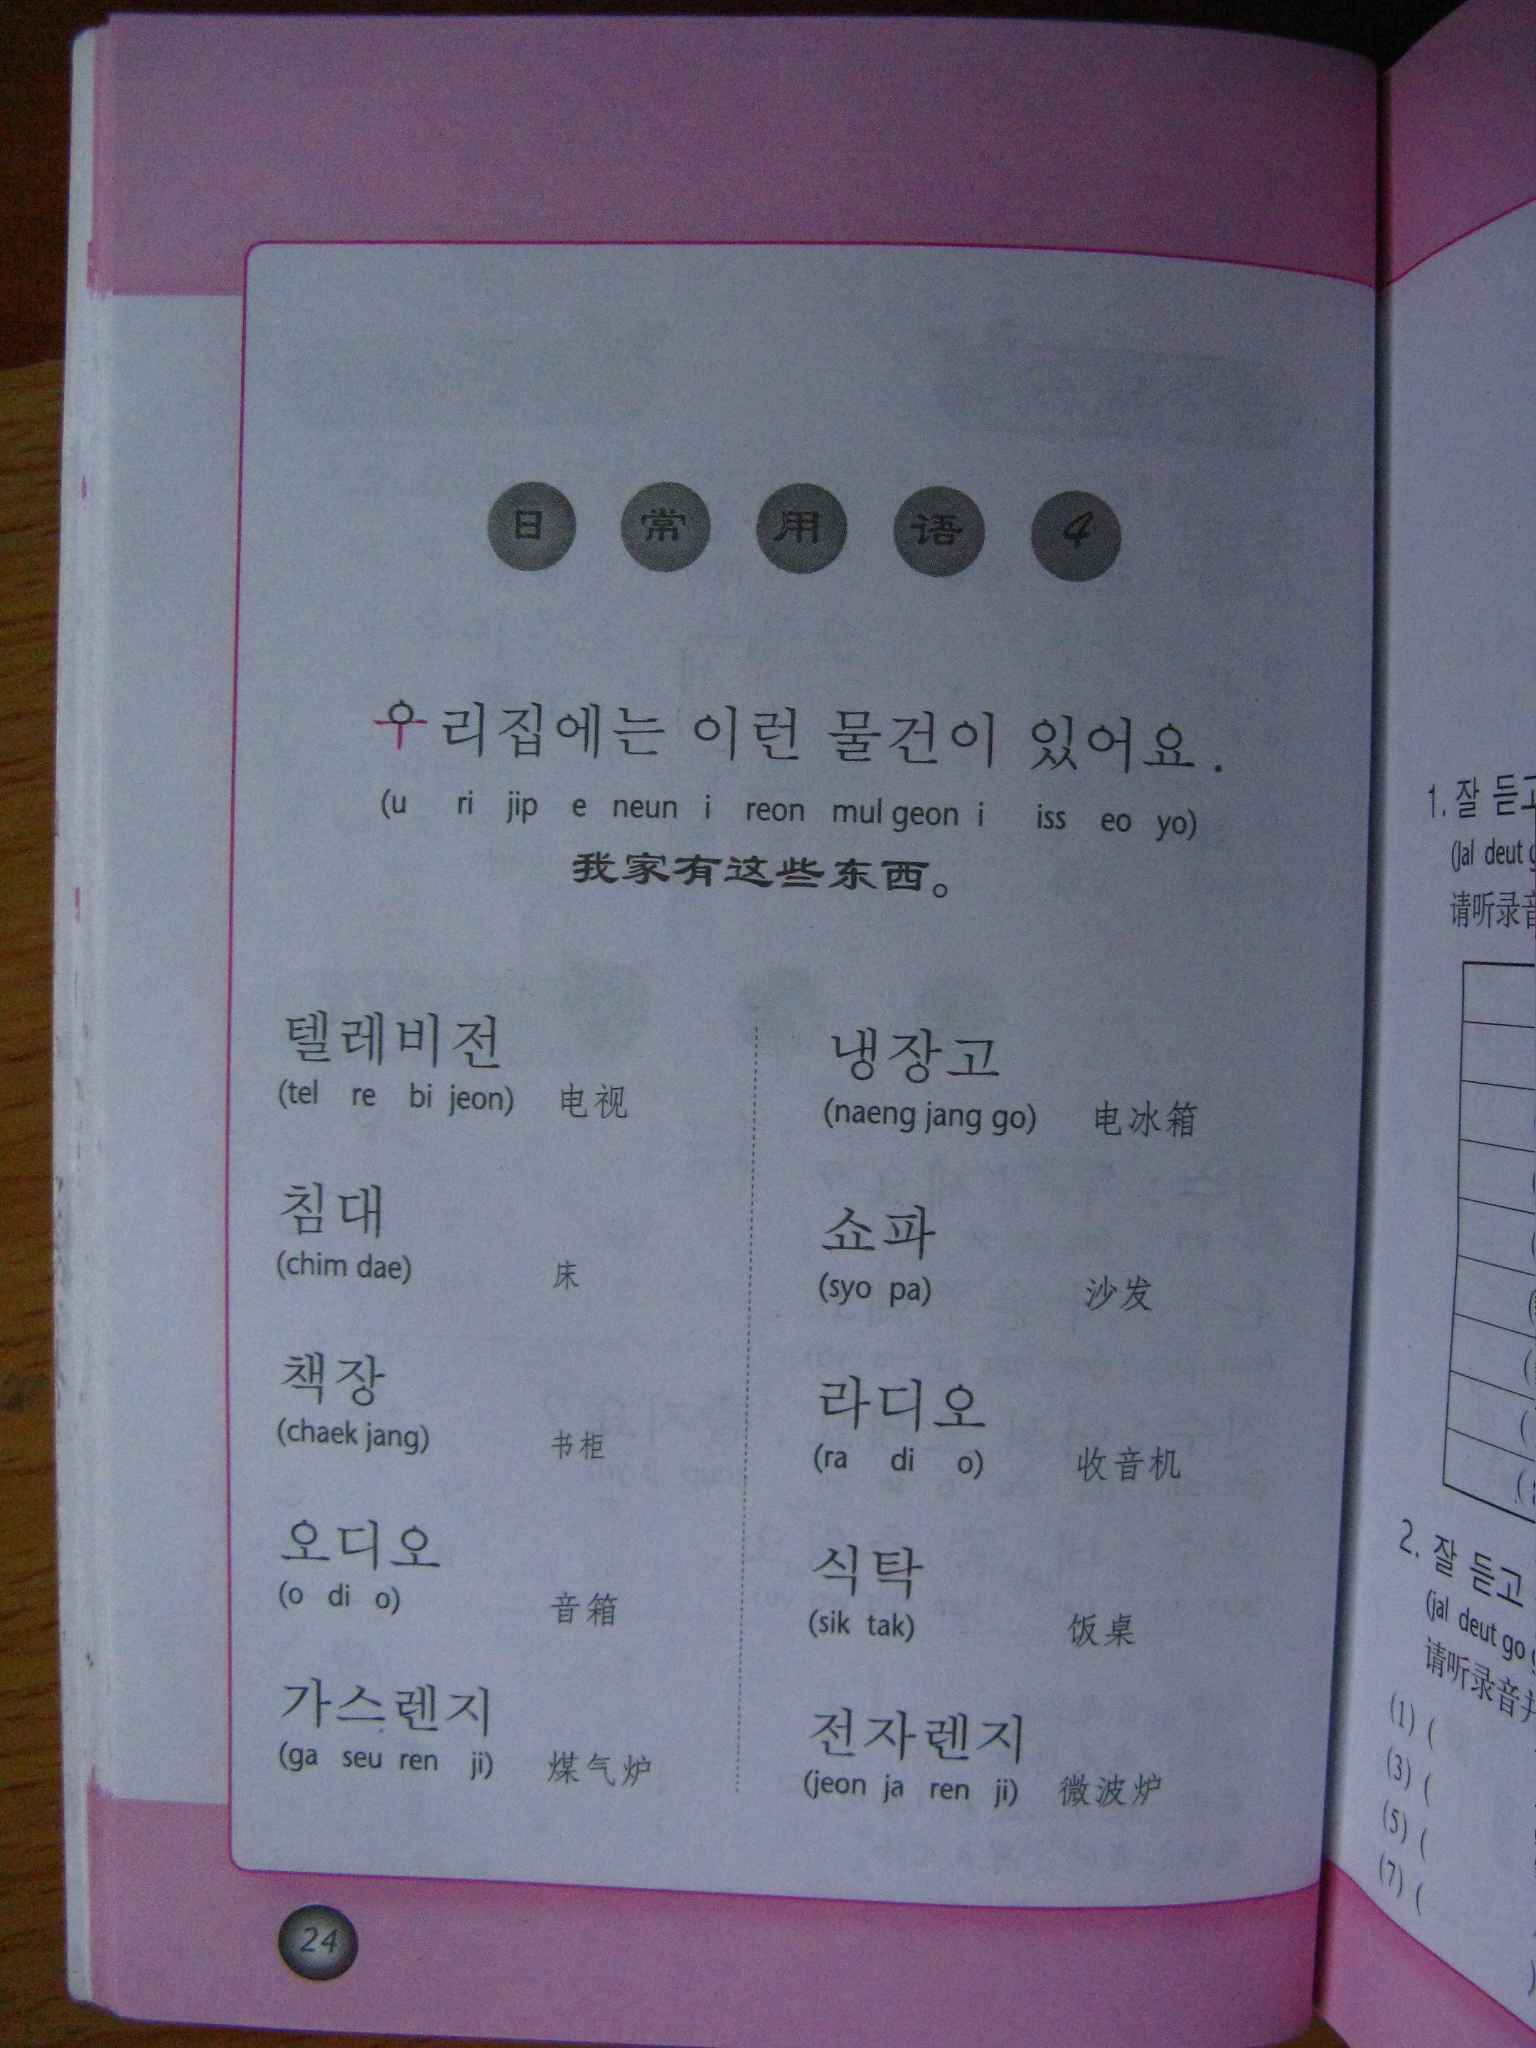 日常用语4
우리집에는 이런 물건이 있어요.
(u ri jip e neun i reon mul geon i iss eo yo)
我家有这些东西。
텔레비전
(tel re bi jeon) 电视
침대
(chim dae) 床
책장
(chaek jang) 书柜
오디오
(o di o) 音箱
가스렌지
(ga seu ren ji) 煤气炉
냉장고
(naeng jang go) 电冰箱
쇼파
(syo pa) 沙发
라디오
(ra di o) 收音机
식탁
(sik tak) 饭桌
전자렌지
(jeon ja ren ji) 微波炉
24
1. 잘 듣고
(Jal deut g
请听录音
2. 잘 듣고
(jal deut go g
请听录音并
(1) (
(3) (
(5) (
(7) (